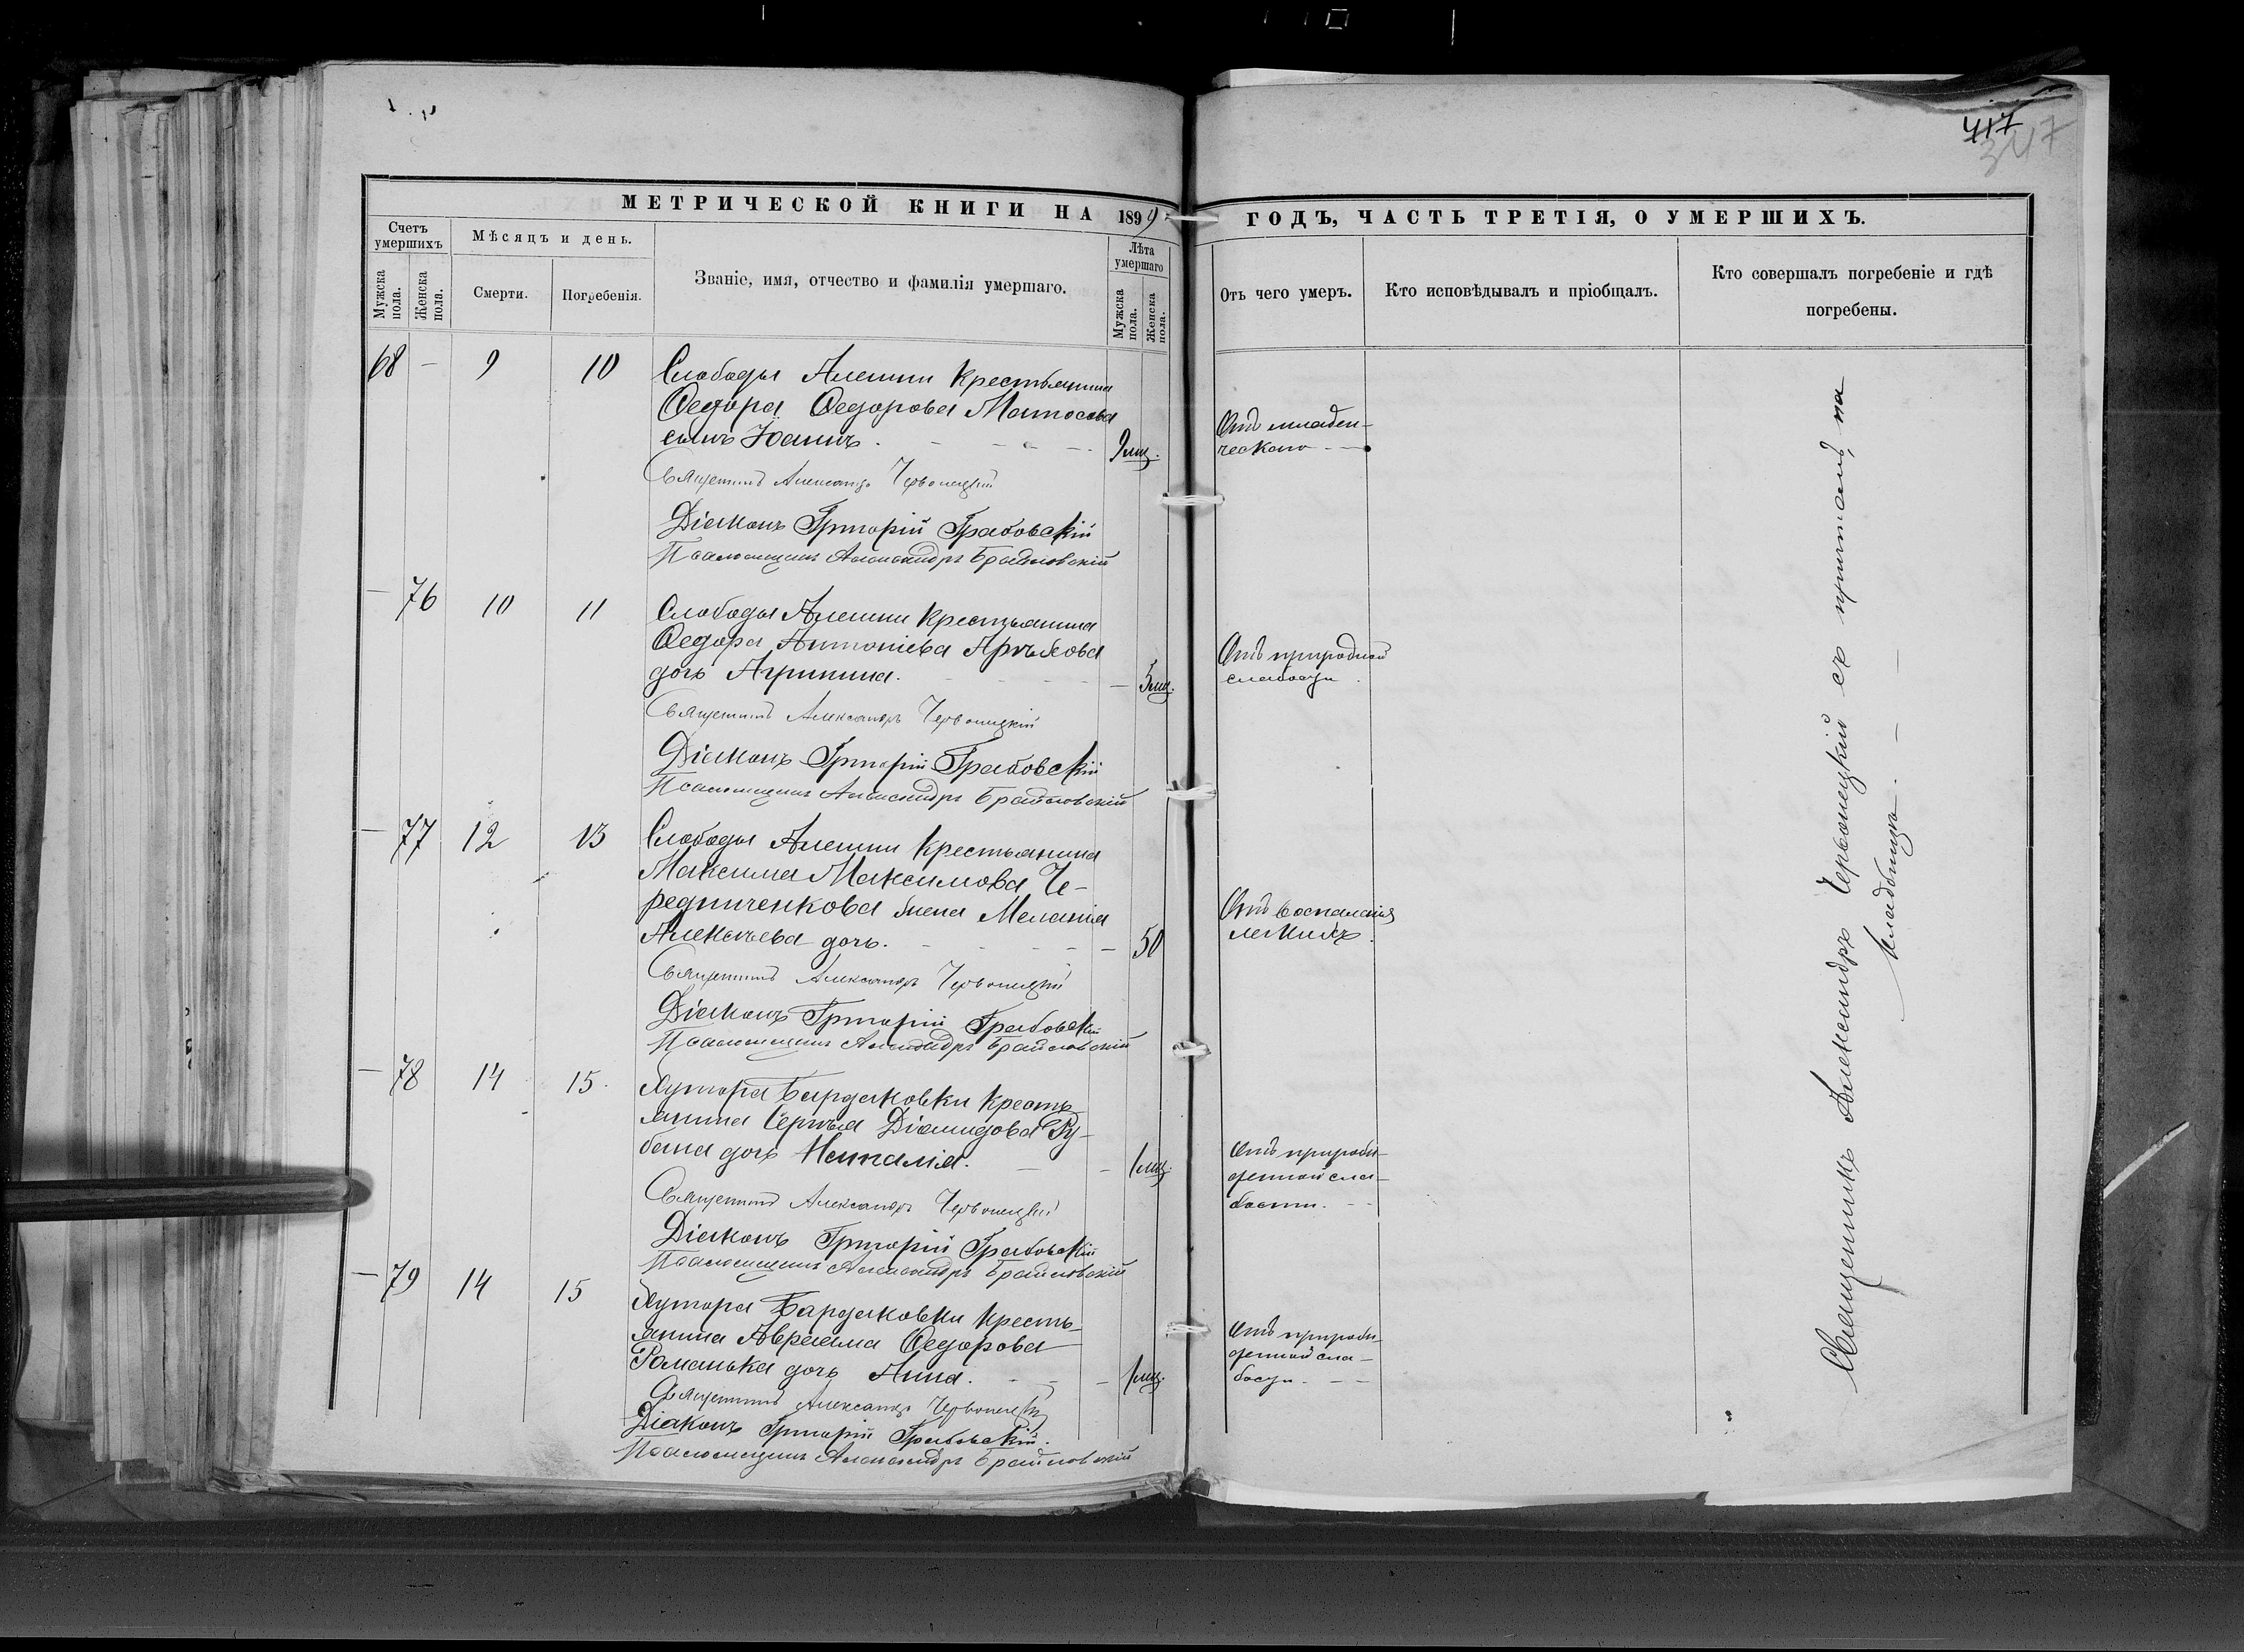 417
347
МЕТРИЧЕСКОЙ КНИГИ НА 1899 ГОДЪ, ЧАСТЬ ТРЕТІЯ, О УМЕРШИХЪ.
Счетъ умершихъ
Мужска пола.
Женска пола.
Мѣсяцъ и день.
Смерти.
Погребенія.
Званіе, имя, отчество и фамилія умершаго.
Лѣта умершаго
Мужска пола.
Женска пола.
Отъ чего умеръ.
Кто исповѣдывалъ и пріобщалъ.
Кто совершалъ погребеніе и гдѣ погребены.
68 — 9 10
Слободы Алешни крестьянина
Ѳедора Ѳедорова Матосова
сынъ Іоаннъ. 9 мц.
Отъ младен-
ческаго
Священникъ Александръ Червонецкій
Діаконъ Григорій Грабовскій
Псаломщикъ Александръ Брайловскій
— 76 10 11
Слободы Алешни крестьянина
Ѳедора Антоніева
дочь Агриппина. — 5 мц.
Отъ природной
слабости
Священникъ Александръ Червонецкій
Діаконъ Григорій Грабовскій
Псаломщикъ Александръ Брайловскій
— 77 12 13
Слободы Алешни крестьянина
Максима Максимова Че-
редниченкова жена Меланія
Алексѣева дочь. — 50
Отъ воспаленія
легкихъ.
Священникъ Александръ Червонецкій
Діаконъ Григорій Грабовскій
Псаломщикъ Александръ Брайловскій
— 78 14 15
Хутора Бардаковки кресть-
янина Сергѣя Діомидова Ру-
бана дочь Наталія. — 1 мц.
Отъ природж-
денной сла-
бости.
Священникъ Александръ Червонецкій
Діаконъ Григорій Грабовскій
Псаломщикъ Александръ Брайловскій
— 79 14 15
Хутора Бардаковки кресть-
янина Авраама Ѳедорова
Романька дочь Анна. — 1 мц.
Отъ природж-
денной сла-
бости.
Священникъ Александръ Червонецкій
Діаконъ Григорій Грабовскій.
Псаломщикъ Александръ Брайловскій
Священникъ Александръ Червонецкій съ причтомъ, на
кладбищѣ.